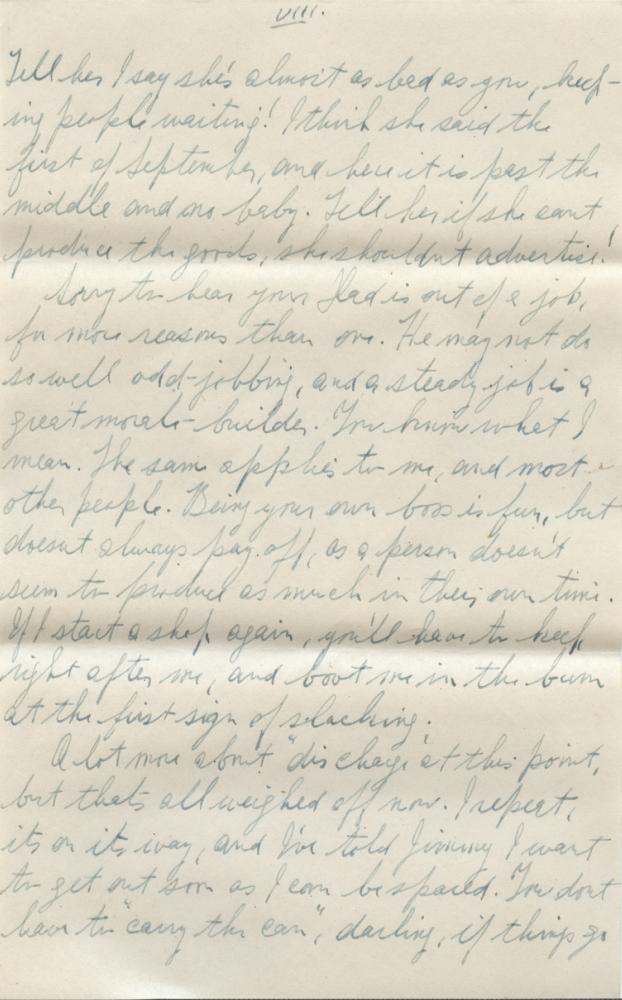 VIII.
Tell her I say she's almost as bad as you, keep-
ing people waiting! I think she said the
first of September, and here it is past the
middle and no baby. Tell her if she cant
produce the goods, she shouldn't advertise!
Sorry to hear your Dad is out of a job,
for more reasons than one. He may not do
so well odd-jobbing, and a steady job is a
great morale-builder. You know what I
mean. The same applies to me, and most
other people. Being your own boss is fun, but
doesnt always pay off, as a person doesn't
seem to produce as much in their own time.
If I start a shop again, you'll have to keep
right after me, and boot me in the bum
at the first sign of slacking.
A lot more about "discharge" at this point,
but thats all weighed off now. I repeat,
its on its way, and I've told Jimmy I want
to get out soon as I can be spared. You dont
have to "carry the can", darling, if things go